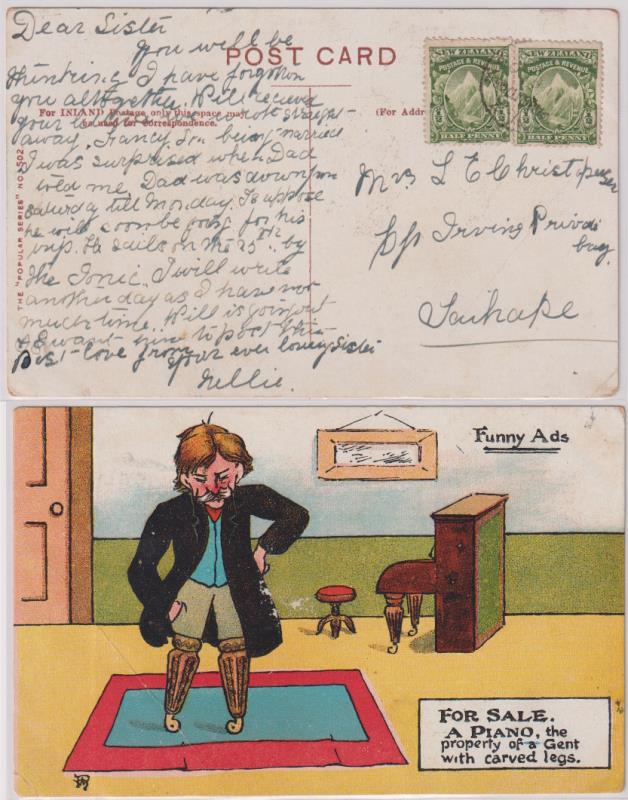 Dear Sister
You will be
thinking I have forgotten
you altogether. Will recieved
your
away. Fancy being married
I was surprised when Dad
told me. Dad was down from
Saturday till Monday. I suppose
he will soon be going for his
trip. He sails on the 25th by
the Ionic. I will write
another day as I have not
much time. Will is going out
& I want him to post this
best love from
Your ever loving Sister
Nellie.
POST CARD
For INLAND Postage only this space may
be used for Correspondence.
(For Addre
THE "POPULAR SERIES" No
NEW ZEALAND
POSTAGE & REVENUE
HALF PENNY
NEW ZEALAND
POSTAGE & REVENUE
HALF PENNY
Mrs L E Christ
Irving Private
bag
Taihape
Funny Ads
FOR SALE.
A PIANO, the
property of a Gent
with carved legs.